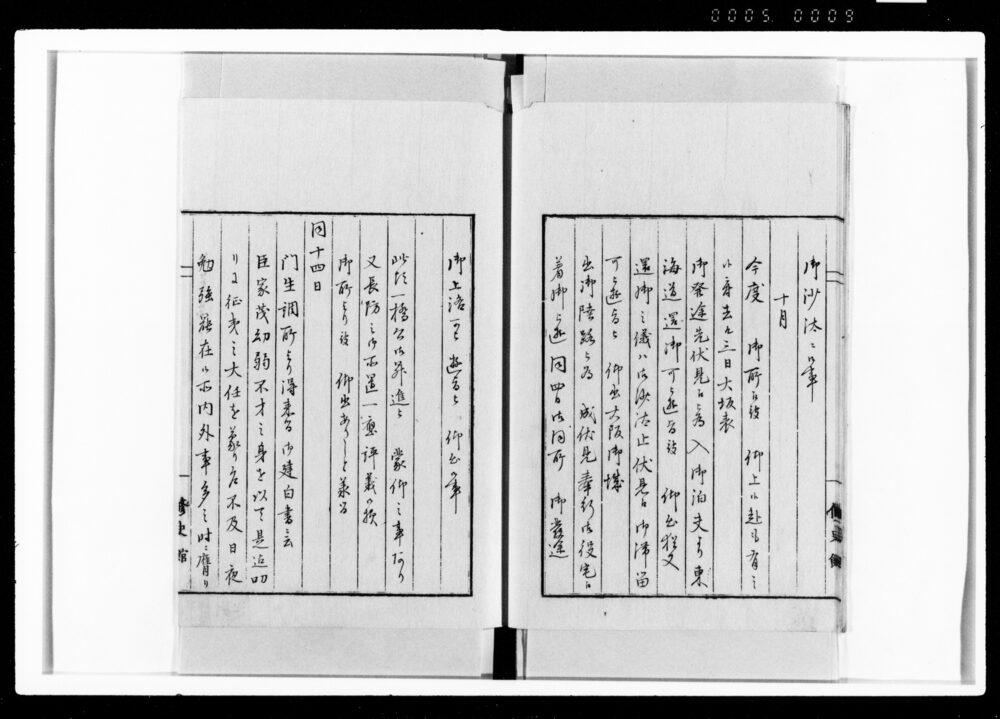 0005 0009
御沙汰之事
十月
今度 御所被 仰上候赴も有之
候旨去ル三日大坂表
御発途先伏見被為 入御泊夫より東
海道還御可被遊旨被 仰出猶又
還御之儀ハ御沙汰止伏見御滞留
可被遊旨 仰出大阪御城
出御陸路被為 成伏見奉行御役宅
着御被遊同四日御同所 御発途
御上洛可被遊旨 仰出事
此頃一橋公御昇進 蒙仰之事阿り
又長防之御所置一應評義之顔
御所より被 仰出あらしと承る
同十四日
門生調所より得来る御建白書云
臣家茂幼弱不才之身を以て是迄叨
りに征夷之大任を蒙り召不及日夜
勉強罷在候所内外事多之時膺り
修史館